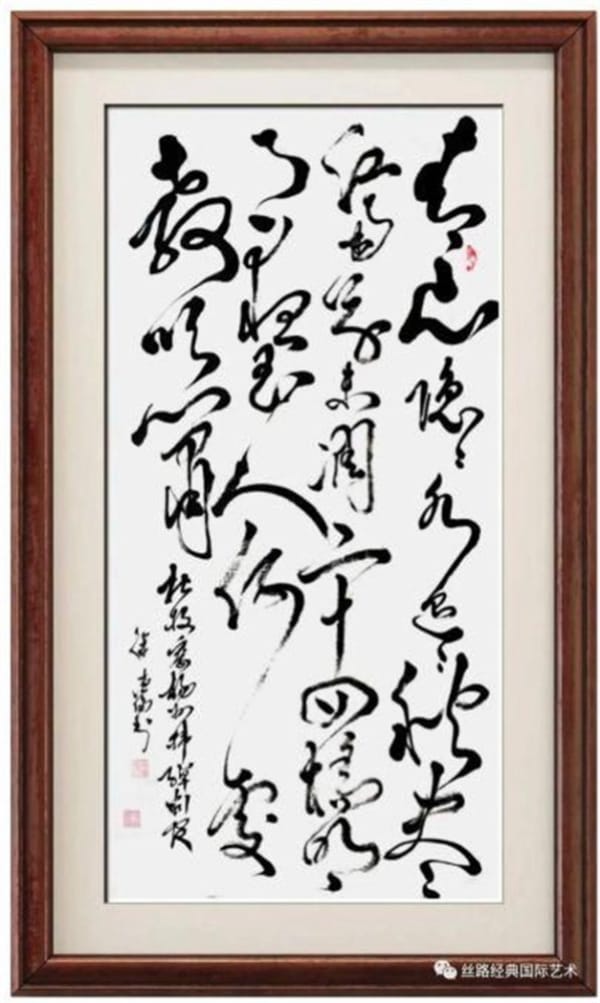 青山隐隐水迢迢秋尽
江南草未凋二十四桥明
月夜玉人何处
教吹箫
杜牧寄扬州韩绰判官
丝路经典国际艺术